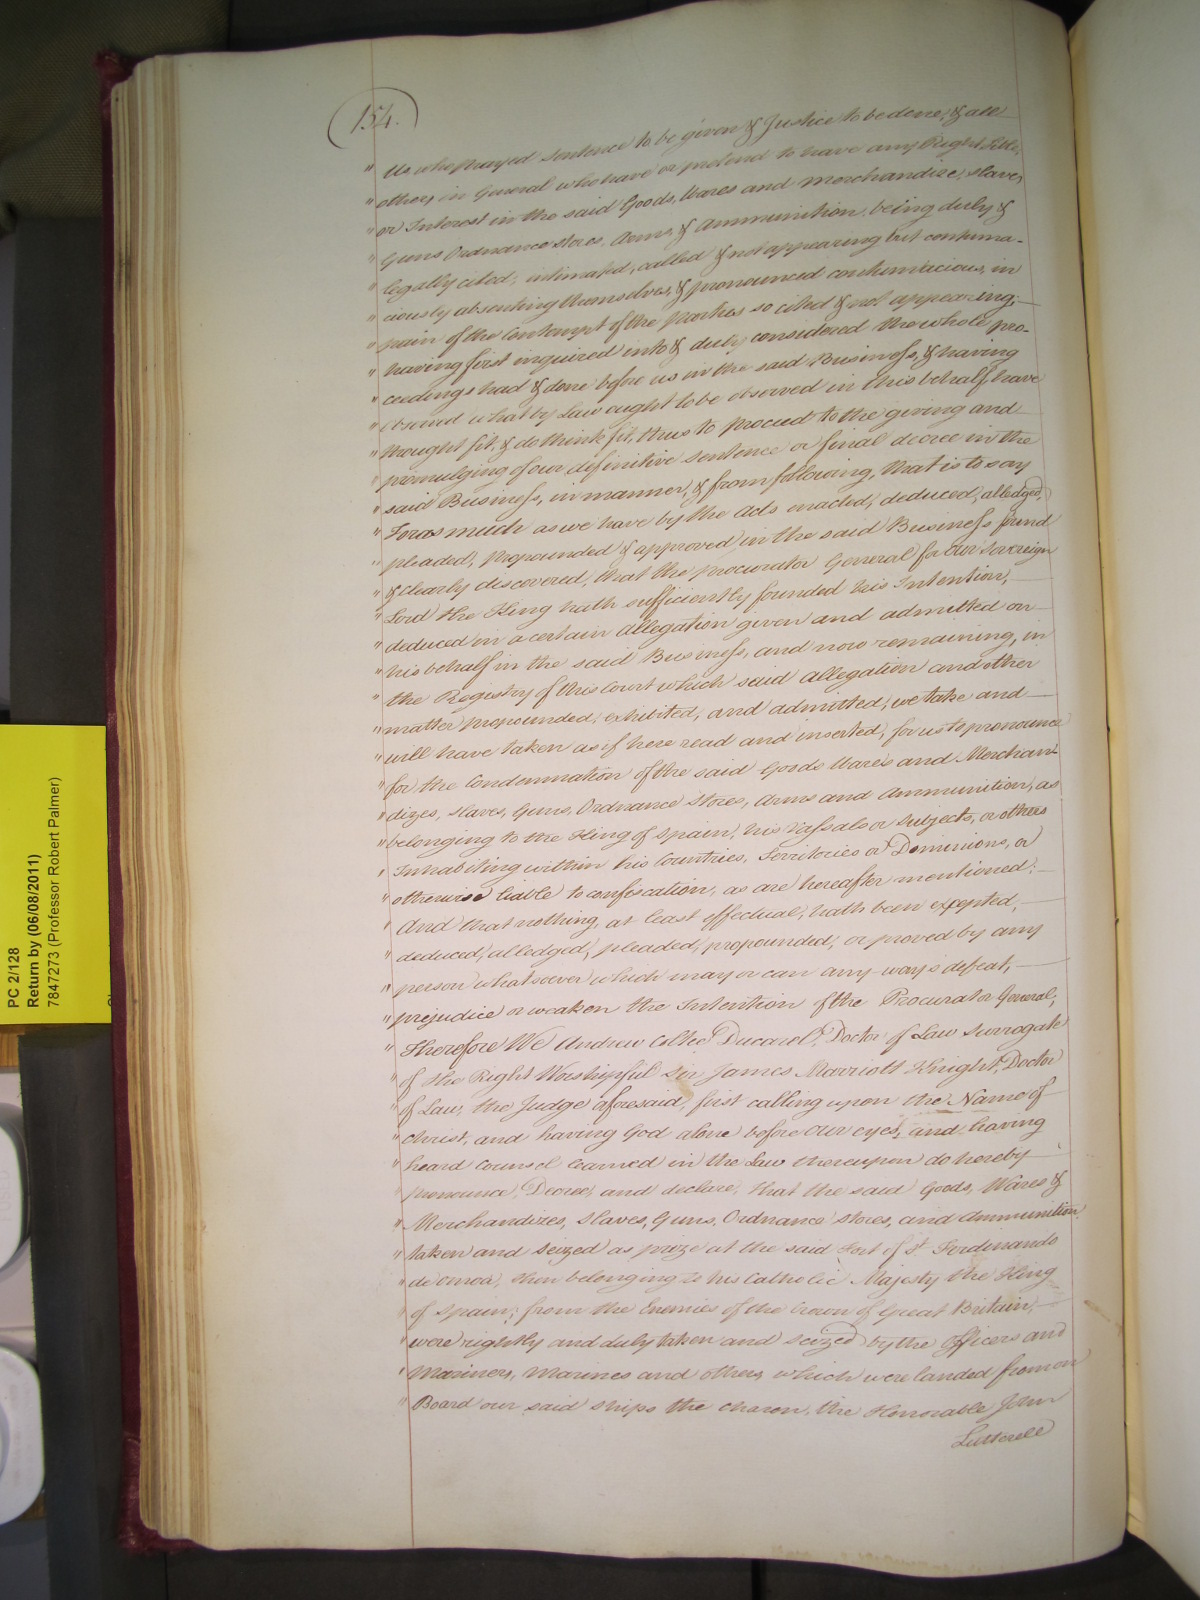 154.
" Us who prayed Sentence to be given & Justice to be done, & all
" others in General who have or pretend to have any Right Title,
" or Interest in the said Goods, Wares and Merchandize, Slaves
" Guns Ordnance stores, Arms, & Ammunition, being duly &
" legally cited, intimated, called & not appearing but contuma-
" ciously absenting themselves, & pronounced contumacious, in
" pain of the Contempt of the Parties so cited & not appearing;
" having first inquired into & duly considered the whole pro-
" ceedings had & done before us in the said Business, & having
" observed what by Law ought to be observed in this behalf, have
" thought fit, & do think fit, thus to proceed to the giving and
" promulging of our definitive sentence or final decree in the
" said Business, in manner, & from following, that is to say
" Forasmuch as we have by the Acts enacted, deduced, alledged,
" pleaded, propounded & approved in the said Business found
" & clearly discovered, that the procurator General for our Sovereign
" Lord the King hath sufficiently founded his Intention,
" deduced in a certain Allegation given and admitted on
" his behalf in the said Business, and now remaining, in
" the Registry of this Court which said allegation and other
" matter propounded, exhibited, and admitted, we take and
" will have taken as if here read and inserted, for us to pronounce
" for the Condemnation of the said Goods Wares and Merchan
" dizes, Slaves, Guns, Ordnance Stores, Arms and Ammunition, as
" belonging to the King of Spain, his Vassals or Subjects, or others
" Inhabiting within his Countries, Territories or Dominions, or
" otherwise liable to confiscation, as are hereafter mentioned:
" And that nothing, at least effectual, hath been excepted,
" deduced, alledged, pleaded, propounded, or proved by any
" person whatsoever which may or can any ways defeat,
" prejudice or weaken the Intention of the Procurator General;
" Therefore We Andrew Coltee Ducarel, Doctor of Law Surrogate
" of the Right Worshipful Sir James Marriott Knight, Doctor
" of Law, the Judge aforesaid, first calling upon the Name of
" Christ, and having God alone before our eyes, and having
" heard Counsel learned in the Law thereupon do hereby
" pronounce, Decree, and declare, that the said Goods, Wares &
" Merchandizes, Slaves, Guns, Ordnance stores, and Ammunition
" taken and Seized as prize at the said Fort of St. Ferdinando
" de Omoa, then belonging to his Catholic Majesty the King
" of Spain; from the Enemies of the Crown of Great Britain,
" were rightly and duly taken and seized by the Officers and
" Mariners, Marines and others, which were landed from on
" Board our said ships the Charon, the Honorable John
Lutterell
PC 2/128
Return by (06/08/2011)
7847273 (Professor Robert Palmer)